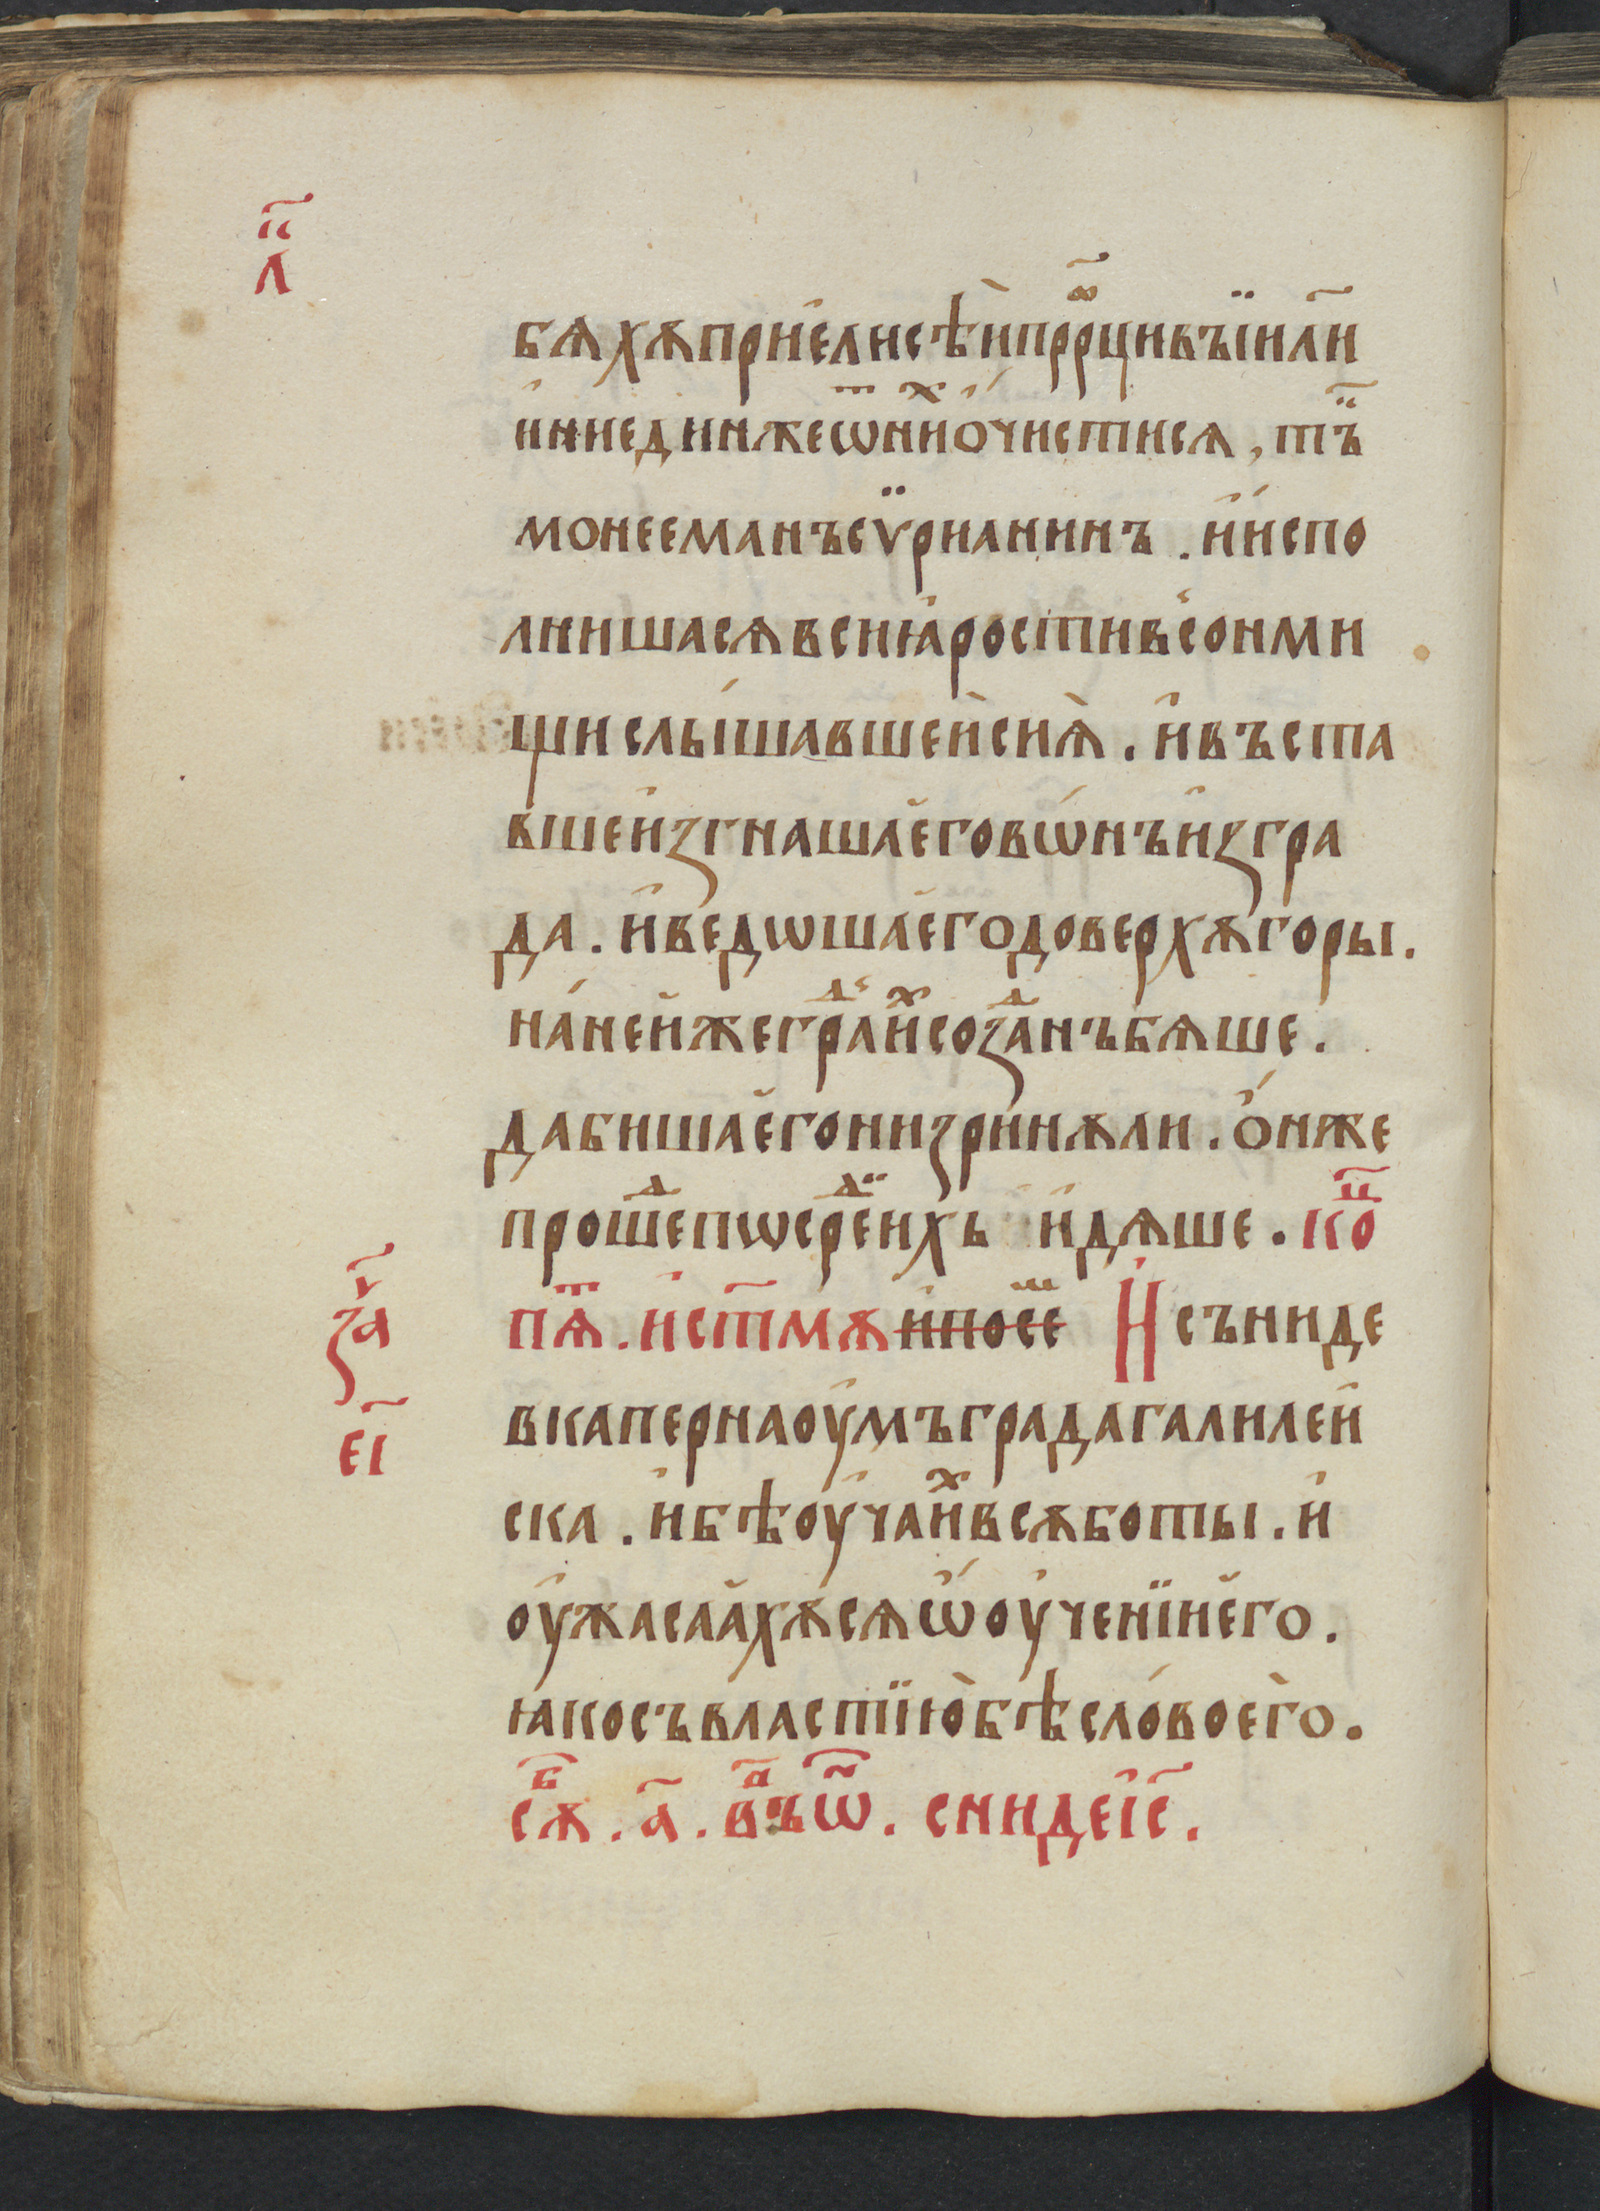 п҃с
л
бѧхѫприе҆лисѣ́ипррⷪ҇цивъїил҃и
и҆ниединжеѿниⷯо҆чистисѧ, тъ̈
монееманъсѵ̈рианинъ . и҆и҆спо
лнишасѧвсиꙗ҆ростивⸯсонми
щислы́шавшеи҆сиѧ̀ . и҆въста
вшеи҆ꙁгнашае҆говѡ́нъи҆ꙁгра
да . и҆ведѡшае҆годоверхѫгоры .
на́нейжеграⷣиⷯсоꙁаⷣнъбѧше .
дабишае҆гониꙁри́нѫли . о҆́нже
прошеⷣпѡсреⷣихъ и҆дѧше . коⷰ
пѧⷮ . и҆ст҃мѫ и҆посеⷲ Исъниде
вкапернаоу҆мъградагалилей
ска . и҆бѣоу҆чаиⷯвсѫботы . и҆
оу҆жасаа҆хѫсѧѡ҆оу҆ченїие҆го .
ꙗкосъвластїю̀бѣсло́вое҆го̀ .
сѫⷠ . а҃ . въⷣѿ . снидеі҆с҃ .
ꙁаⷱ
еі҃